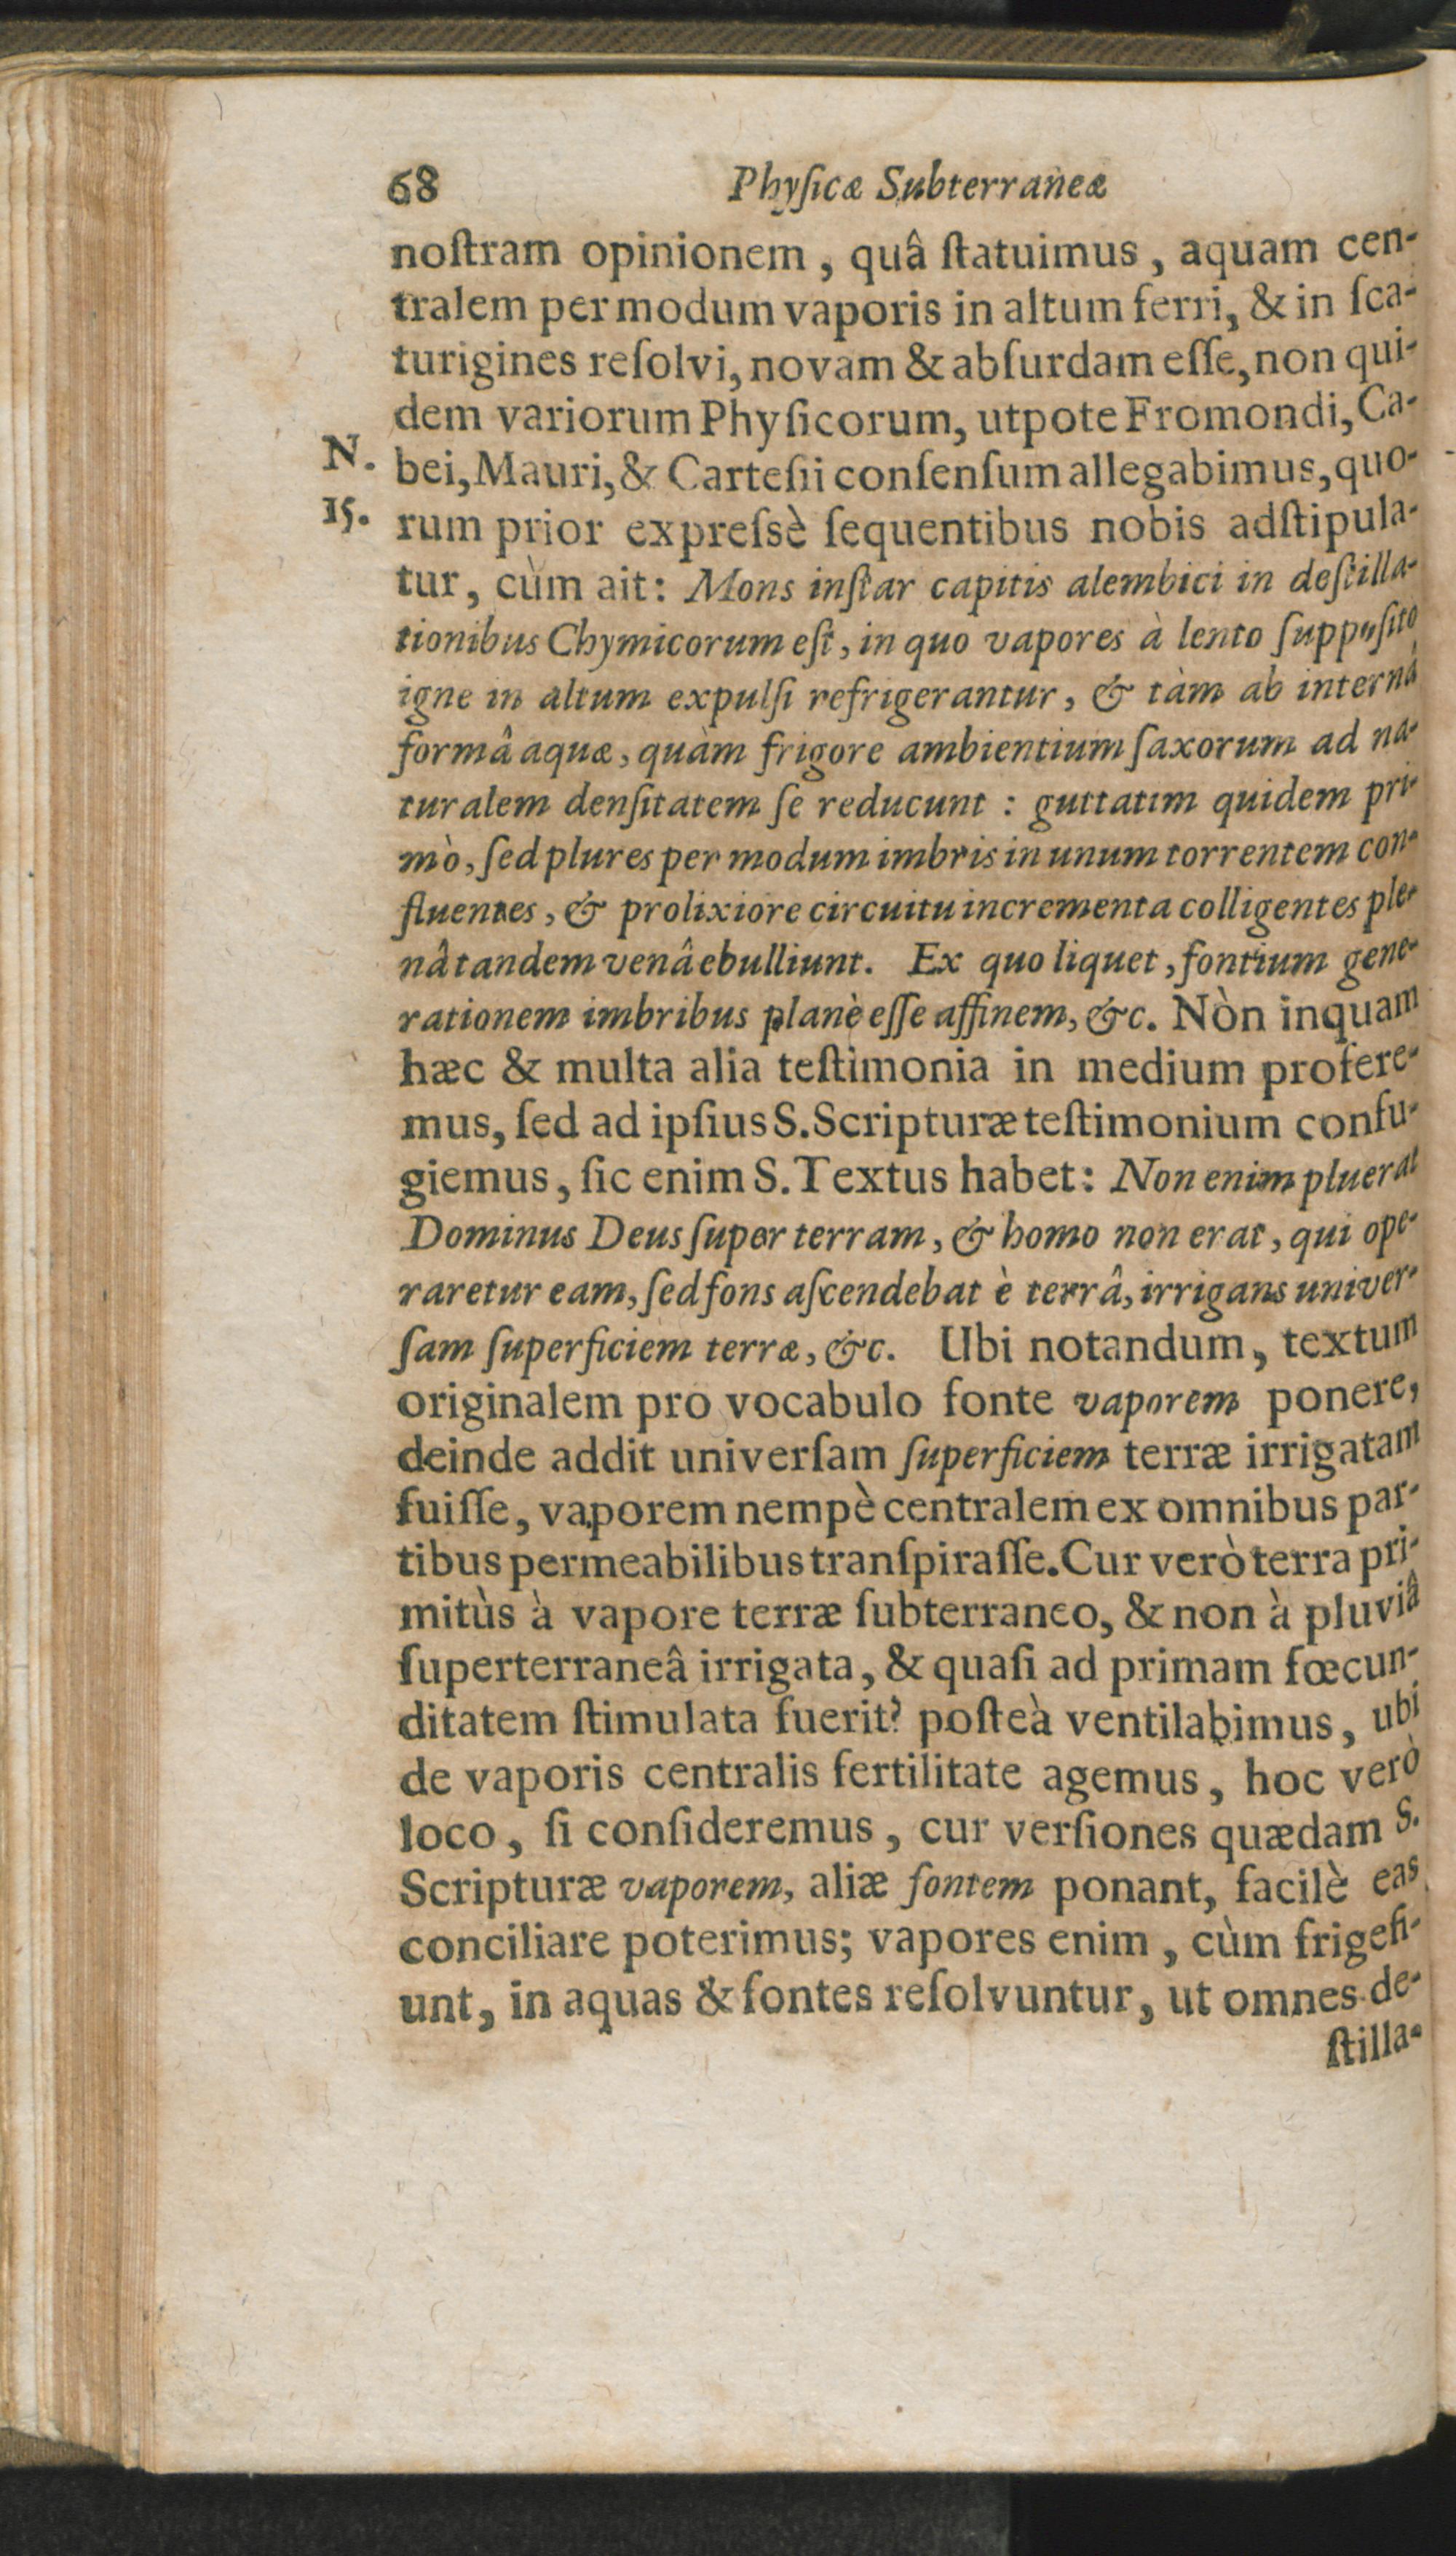 68 Phyſicæ Subterraneæ
noſtram opinionem, quâ ſtatuimus, aquam cen-
tralem per modum vaporis in altum ferri, & in ſca-
turigines reſolvi, novam & abſurdam eſſe, non qui-
dem variorum Phyſicorum, utpote Fromondi, Ca-
N. bei, Mauri, & Carteſii conſenſum allegabimus, quo-
15. rum prior expreſsè ſequentibus nobis adſtipula-
tur, cùm ait: Mons inſtar capitis alembici in deſtilla-
tionibus Chymicorum eſt, in quo vapores à lento ſuppoſito
igne in altum expulſi refrigerantur, & tàm ab internâ
formâ aquæ, quàm frigore ambientium ſaxorum ad na-
turalem denſitatem ſe reducunt : guttatim quidem pri-
mò, ſed plures per modum imbris in unum torrentem con-
fluentes, & prolixiore circuitu incrementa colligentes ple-
nâ tandem venâ ebulliunt. Ex quo liquet, fontium gene-
rationem imbribus planè eſſe affinem, &c. Nòn inquam
hæc & multa alia teſtimonia in medium profere-
mus, ſed ad ipſius S. Scripturæ teſtimonium confu-
giemus, ſic enim S. Textus habet: Non enim pluerat
Dominus Deus ſuper terram, & homo non erat, qui ope-
raretur eam, ſed fons aſcendebat è terrâ, irrigans univer-
ſam ſuperficiem terræ, &c. Ubi notandum, textum
originalem pro vocabulo fonte vaporem ponere,
deinde addit univerſam ſuperficiem terræ irrigatam
fuiſſe, vaporem nempè centralem ex omnibus par-
tibus permeabilibus tranſpiraſſe. Cur verò terra pri-
mitùs à vapore terræ ſubterraneo, & non à pluviâ
ſuperterraneâ irrigata, & quaſi ad primam fœcun-
ditatem ſtimulata fuerit? poſteà ventilabimus, ubi
de vaporis centralis fertilitate agemus, hoc verò
loco, ſi conſideremus, cur verſiones quædam S.
Scripturæ vaporem, aliæ fontem ponant, facilè eas
conciliare poterimus; vapores enim, cùm frigefi-
unt, in aquas & fontes reſolvuntur, ut omnes de-
ſtilla-